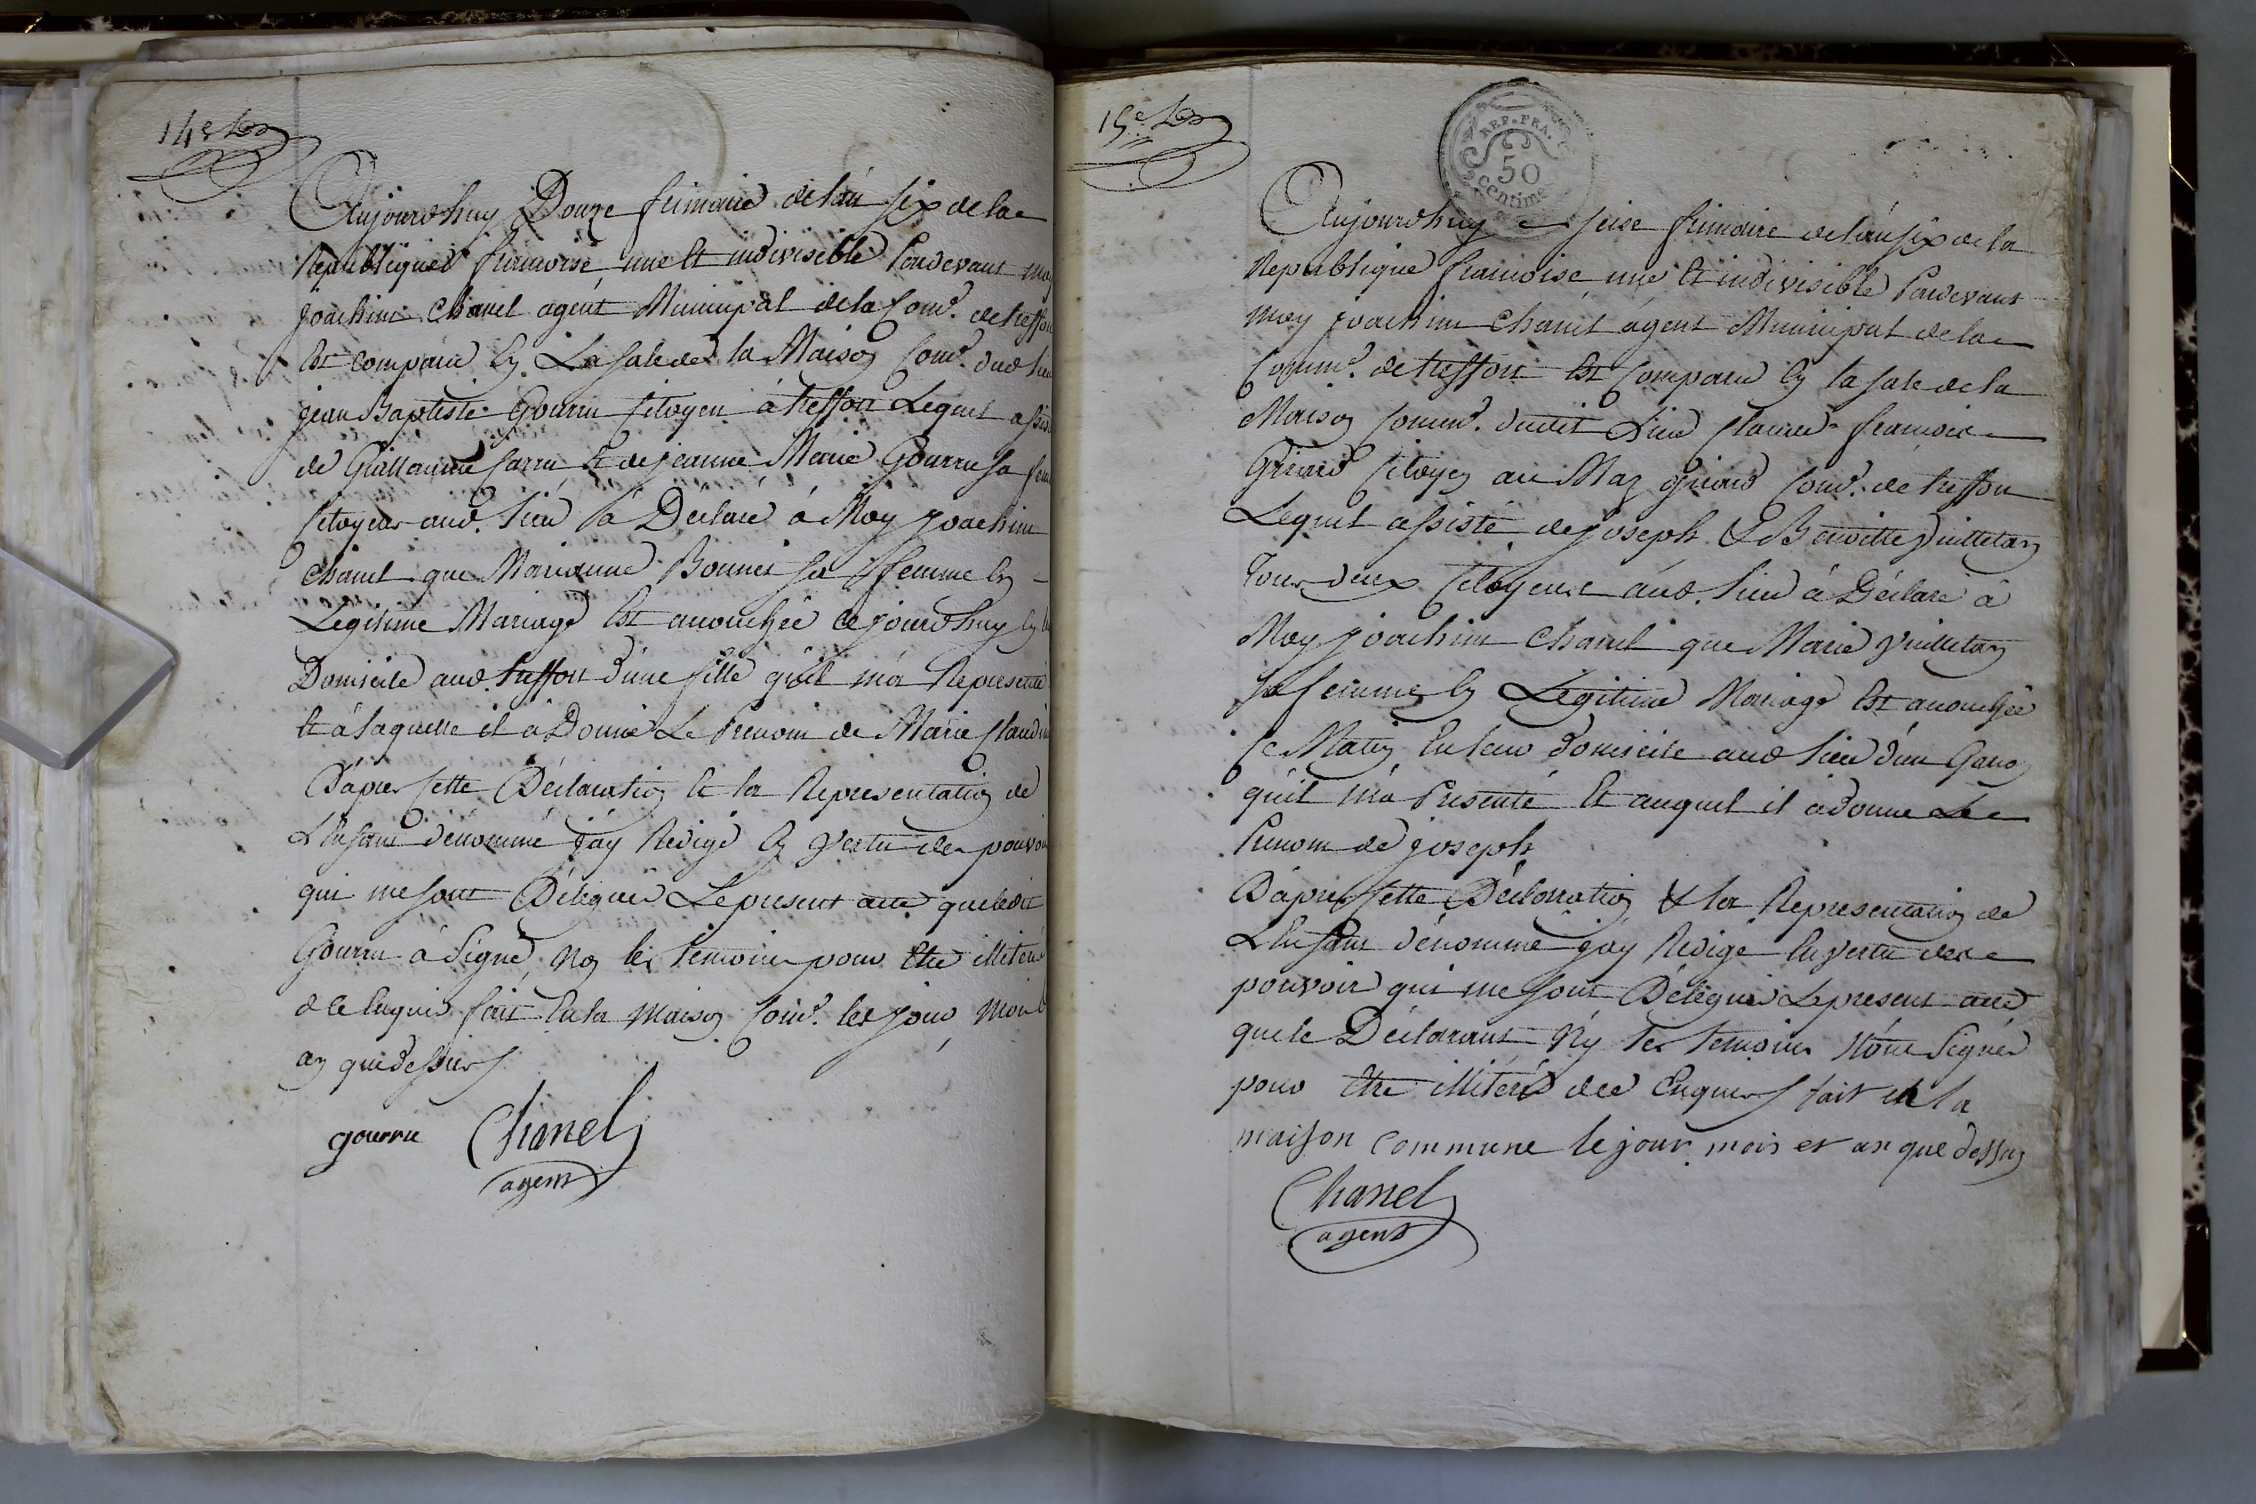 14e
Aujourdhuy Douze frimaire de lan six de la
Republique francoise une et indivisible Pardevant moy
joachim Chanel agent Municipal de la Come. de treffort
Est comparu En La sale de la Maison Come. dud lieu
jean Baptiste Gourru Citoyen à treffort Lequel assis
de Guillaume et de jeanne Marie Gourru sa fem
Citoyens aud. lieu a Déclaré à Moy joachim
Chanel que Marianne Bonnet sa femme En
Legitime Mariage Est acouchée ce jourdhuy En
Domicile aud. treffort d'une fille qu'il m'a Representé
Et à laquelle il a Donné Le Prenom de Marie Claudin
D'apres Cette Déclaration Et la Representation de
L'Enfant dénommé j'ay Redigé En Vertu des pouvoir
qui me sont Délégués Le present acte que ledit
Gourru à Signé Non les temoins pour Etre illiteré
de ce Enquis fait En la Maison Come. les jour, Mois
an que dessus
gourru Chanel
agent
15e
REP. FRA.
50
centime
Aujourdhuy seise frimaire de lan six de la
Republique francoise une Et indivisible Pardevant
Moy joachim Chanel agent Municipal de la
Comme. de treffort Est Comparu En la sale de la
Maison Comme. dudit Lieu Claude francois
Girard Citoyen au Maz girard Come. de treffort
Lequel assisté de joseph & Benoitte Vuilletan
Tous deux Citoyens aud. lieu à Déclaré à
Moy joachim Chanel que Marie Vuilletan
sa femme En Legitime Mariage Est acouchée
Ce Matin En leur domicile aud lieu d'un Garcon
qu'il m'a Presenté Et auquel il a donné Le
Prenom de joseph
D'apres Cette Déclarration & la Representation de
L'Enfant dénommé j'ay Redigé En Vertu des
pouvoir qui me sont Délégués Le present acte
que le Déclarant Ny les temoins N'ont Signés
pour Etre illiterés de ce Enquers fait en la
maison commune le jour mois et an que dessus
Chanel
agent